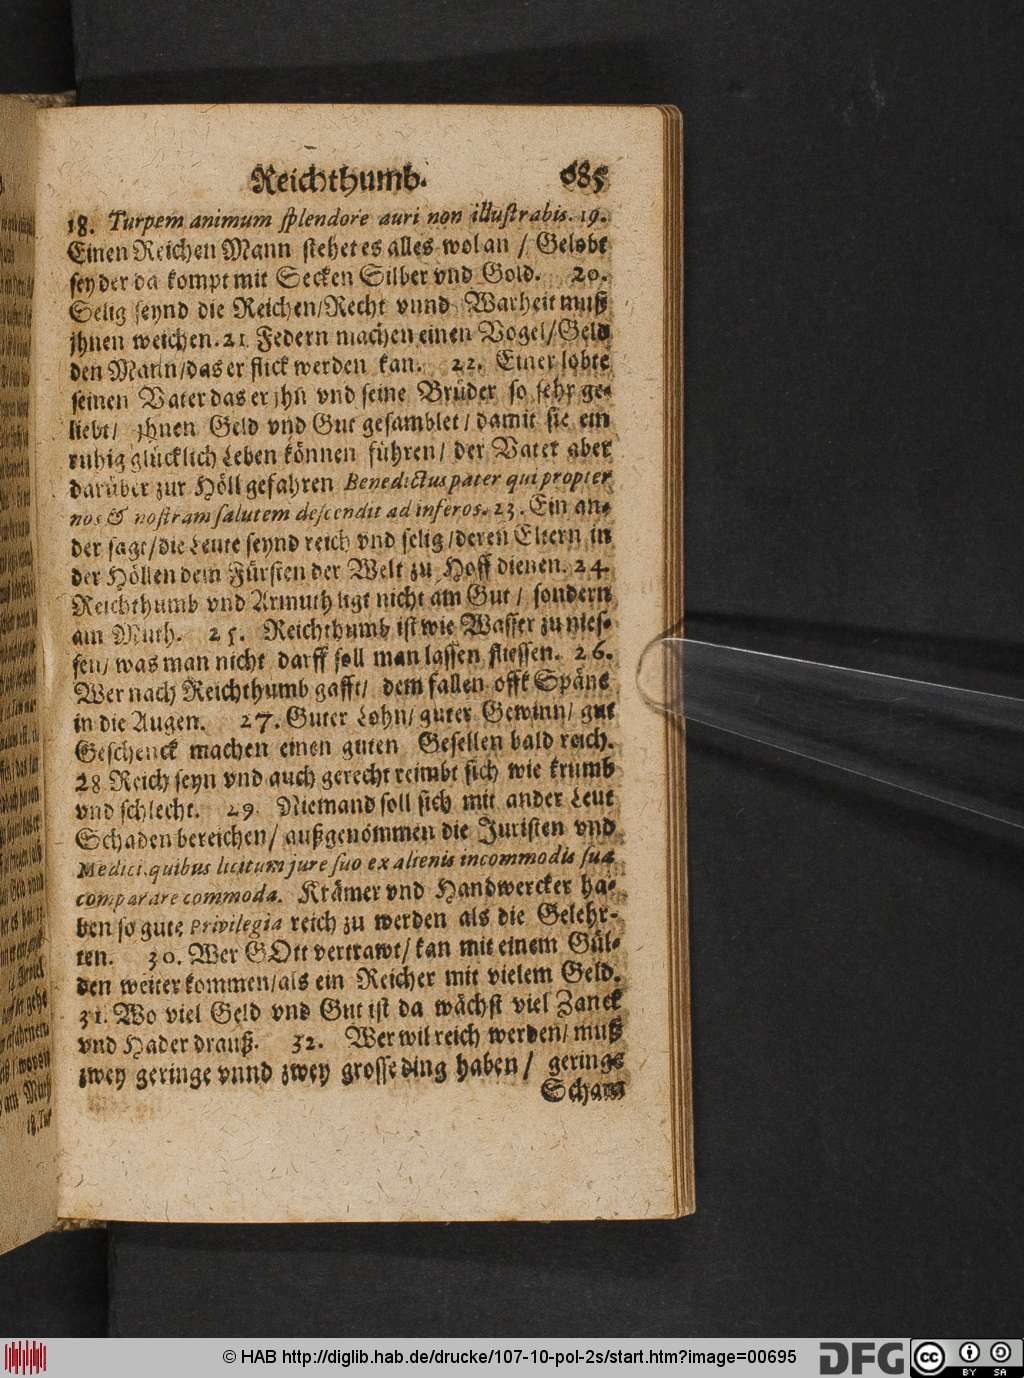 Reichthumb. 685
18. Turpem animum splendore auri non illustrabis. 19.
Einen Reichen Mann stehet es alles wol an / Gelobt
sey der da kompt mit Secken Silber vnd Gold. 20.
Selig seynd die Reichen/Recht vnnd Warheit muß
jhnen weichen. 21 Federn machen einen Vogel/Geld
den Mann/das er flick werden kan. 22. Einer lobte
seinen Vater das er jhn vnd seine Brüder so sehr ge-
liebt/ jhnen Geld vnd Gut gesamblet/ damit sie ein
ruhig glücklich Leben können führen/ der Vater aber
darüber zur Höll gefahren Benedictus pater qui propter
nos & nostram salutem descendit ad inferos. 23. Ein an-
der sagt/die Leute seynd reich vnd selig/deren Eltern in
der Höllen dem Fürsten der Welt zu Hoff dienen. 24.
Reichthumb vnd Armuth ligt nicht am Gut/ sondern
am Muth. 25. Reichthumb ist wie Wasser zu nies-
sen/ was man nicht darff soll man lassen fliessen. 26.
Wer nach Reichthumb gafft/ dem fallen offt Späne
in die Augen. 27. Guter Lohn/ guter Gewinn/ gut
Geschenck machen einen guten Gesellen bald reich.
28 Reich seyn vnd auch gerecht reimbt sich wie krumb
vnd schlecht. 29. Niemand soll sich mit ander Leut
Schaden bereichen/ außgenommen die Juristen vnd
Medici, quibus licitum jure suo ex alienis incommodis sua
comparare commoda. Krämer vnd Handwercker ha-
ben so gute Privilegia reich zu werden als die Gelehr-
ten. 30. Wer GOtt vertrawt/ kan mit einem Gül-
den weiter kommen/als ein Reicher mit vielem Geld.
31. Wo viel Geld vnd Gut ist da wächst viel Zanck
vnd Hader drauß. 32. Wer wil reich werden/ muß
zwey geringe vnnd zwey grosse ding haben / geringe
Scham
© HAB http://diglib.hab.de/drucke/107-10-pol-2s/start.htm?image=00695
DFG
cc
BY SA